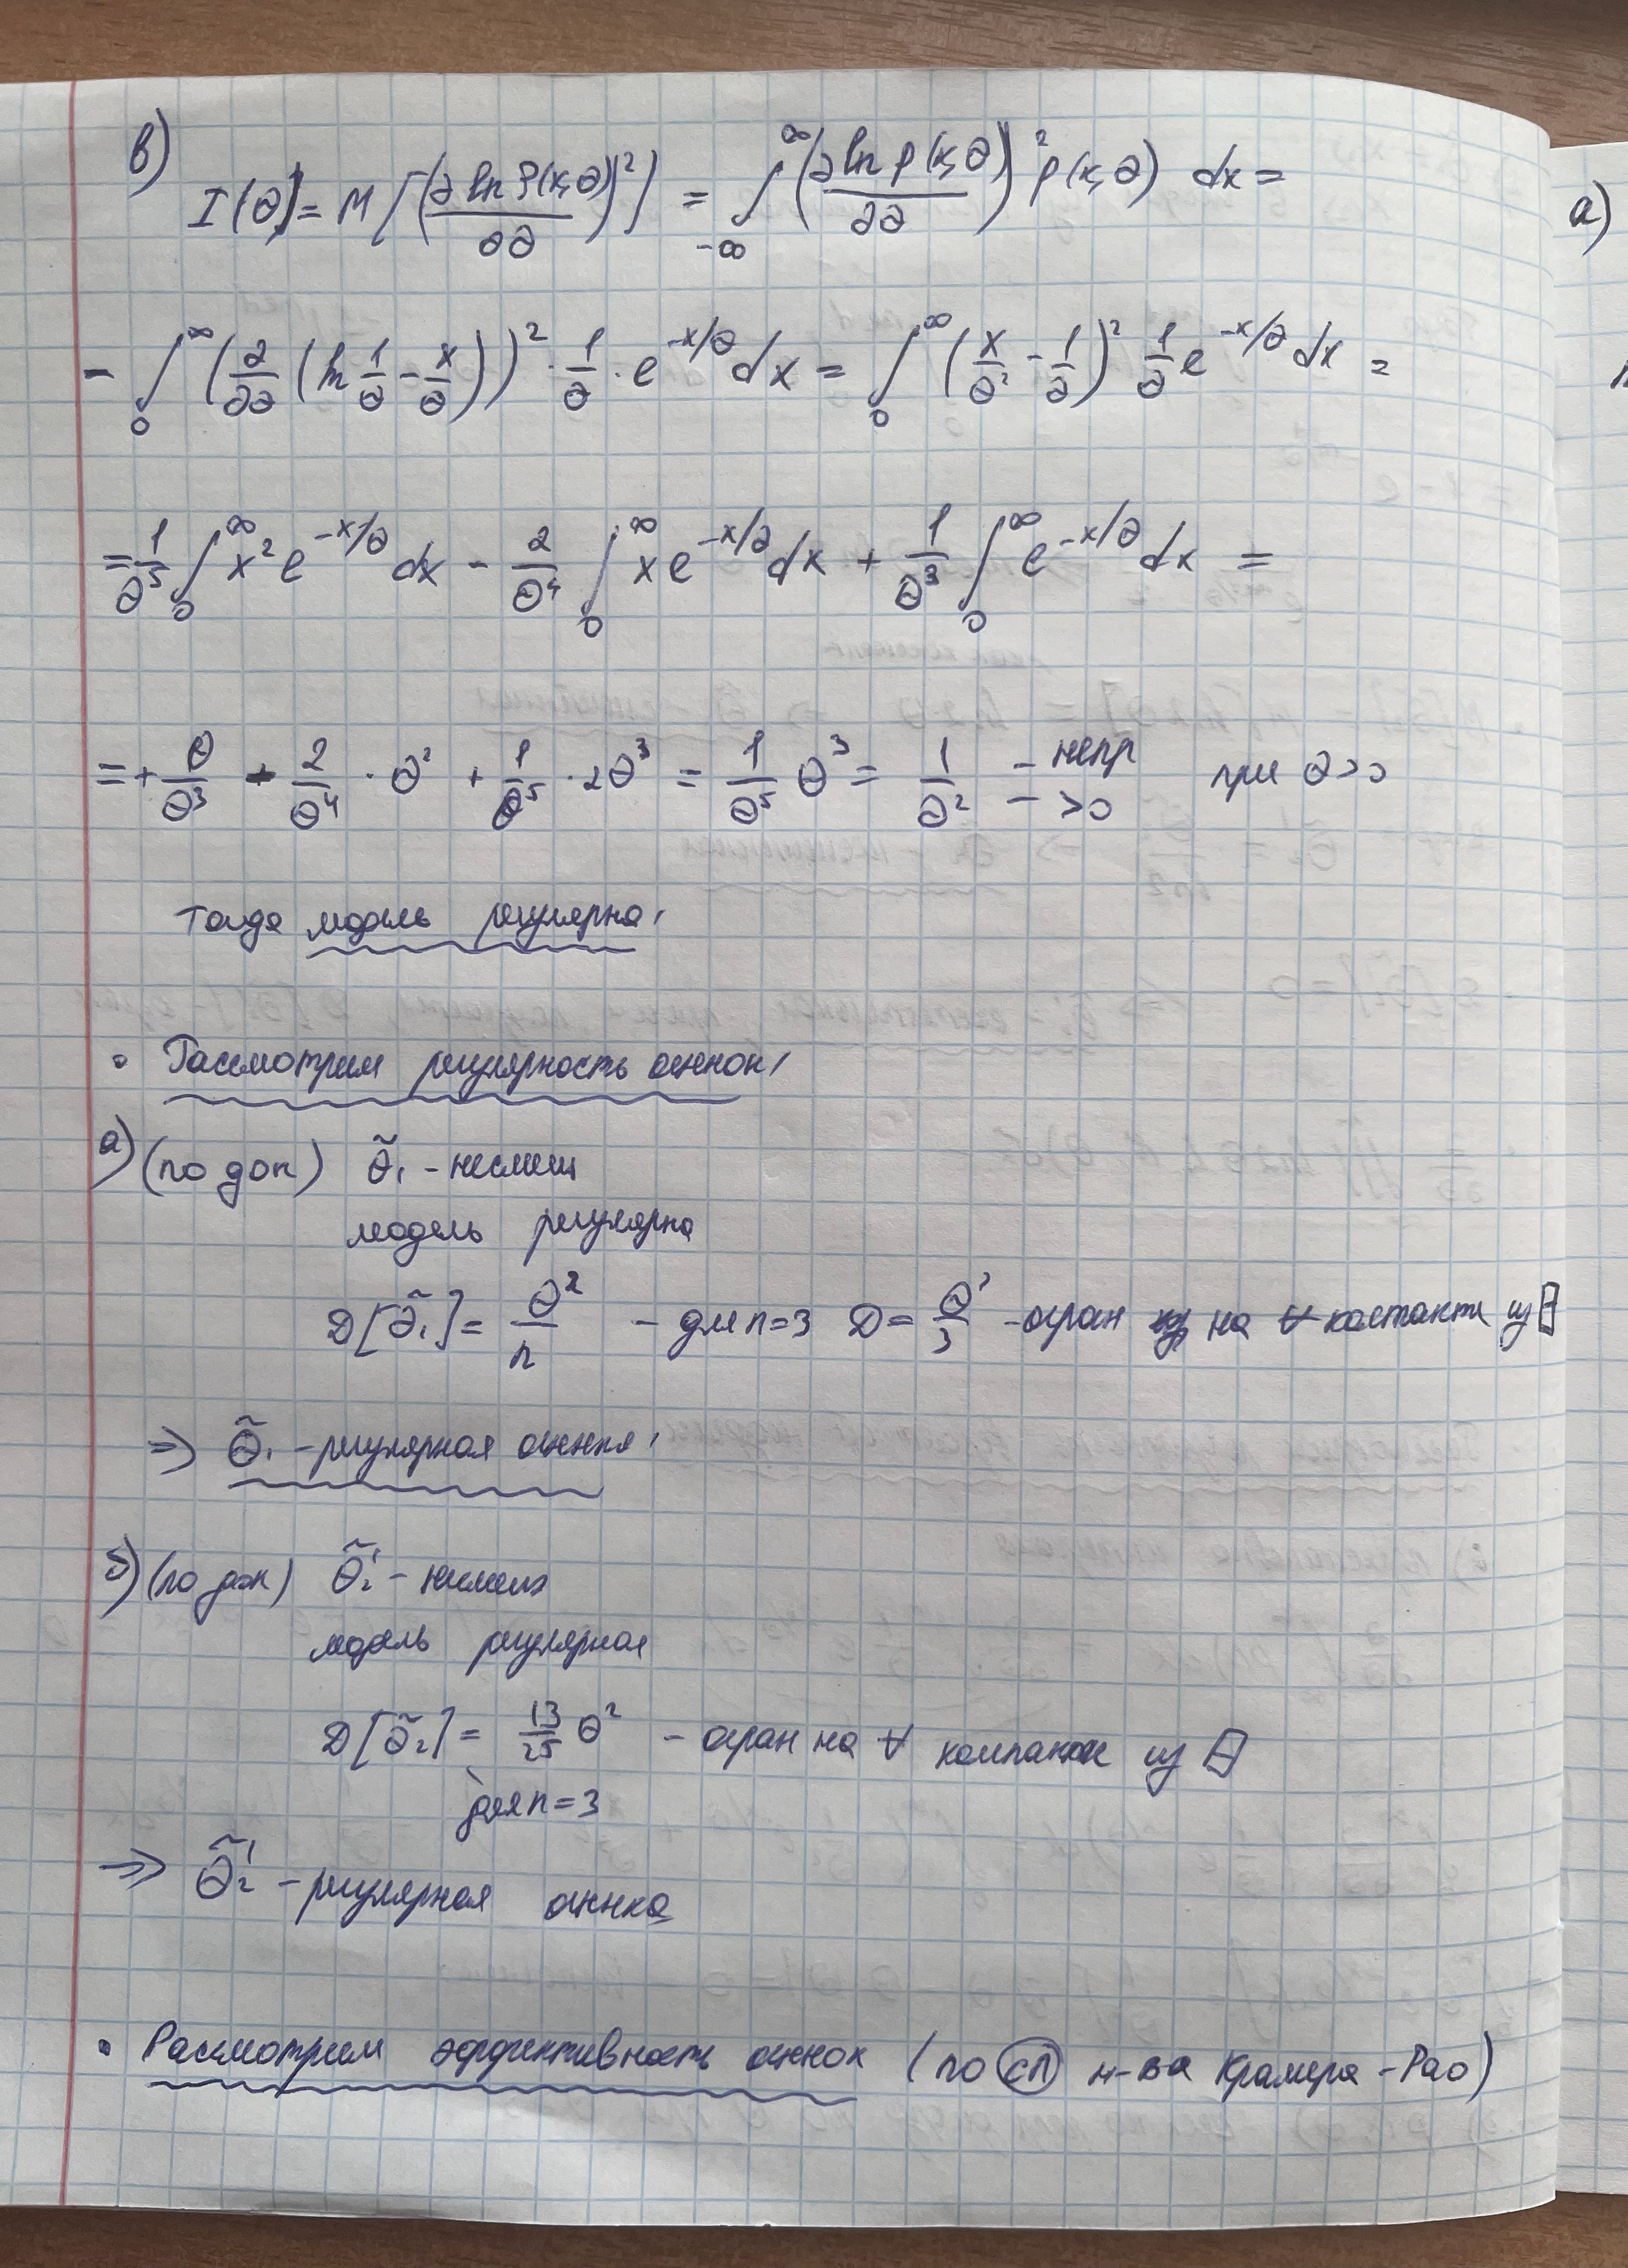 в)
I(θ) = M[(∂ ln p(x,θ)/∂θ)²] = ∫_{-∞}^{∞} (∂ ln p(x,θ)/∂θ)² p(x,θ) dx =
= ∫_0^∞ (∂/∂θ (ln 1/θ - x/θ))² · 1/θ · e^{-x/θ} dx = ∫_0^∞ (x/θ² - 1/θ)² 1/θ e^{-x/θ} dx =
= 1/θ⁵ ∫_0^∞ x² e^{-x/θ} dx - 2/θ⁴ ∫_0^∞ x e^{-x/θ} dx + 1/θ³ ∫_0^∞ e^{-x/θ} dx =
= + θ/θ³ - 2/θ⁴ · θ² + 1/θ⁵ · 2θ³ = 1/θ⁵ θ³ = 1/θ² - непр - >0 при θ>0
Тогда модель регулярна,
• Рассмотрим регулярность оценок,
а) (по док) θ̃₁ - несмещ
модель регулярна
D[θ̃₁] = θ²/n - для n=3 D = θ²/3 - огран на ∀ из Θ
⇒ θ̃₁ - регулярная оценка,
б) (по док) θ̃₂' - несмещ
модель регулярная
D[θ̃₂] = 13/25 θ² - огран на ∀ компакте из Θ
для n=3
⇒ θ̃₂' - регулярная оценка
• Рассмотрим эффективность оценок (по сл н-ва Крамера - Рао)
а)